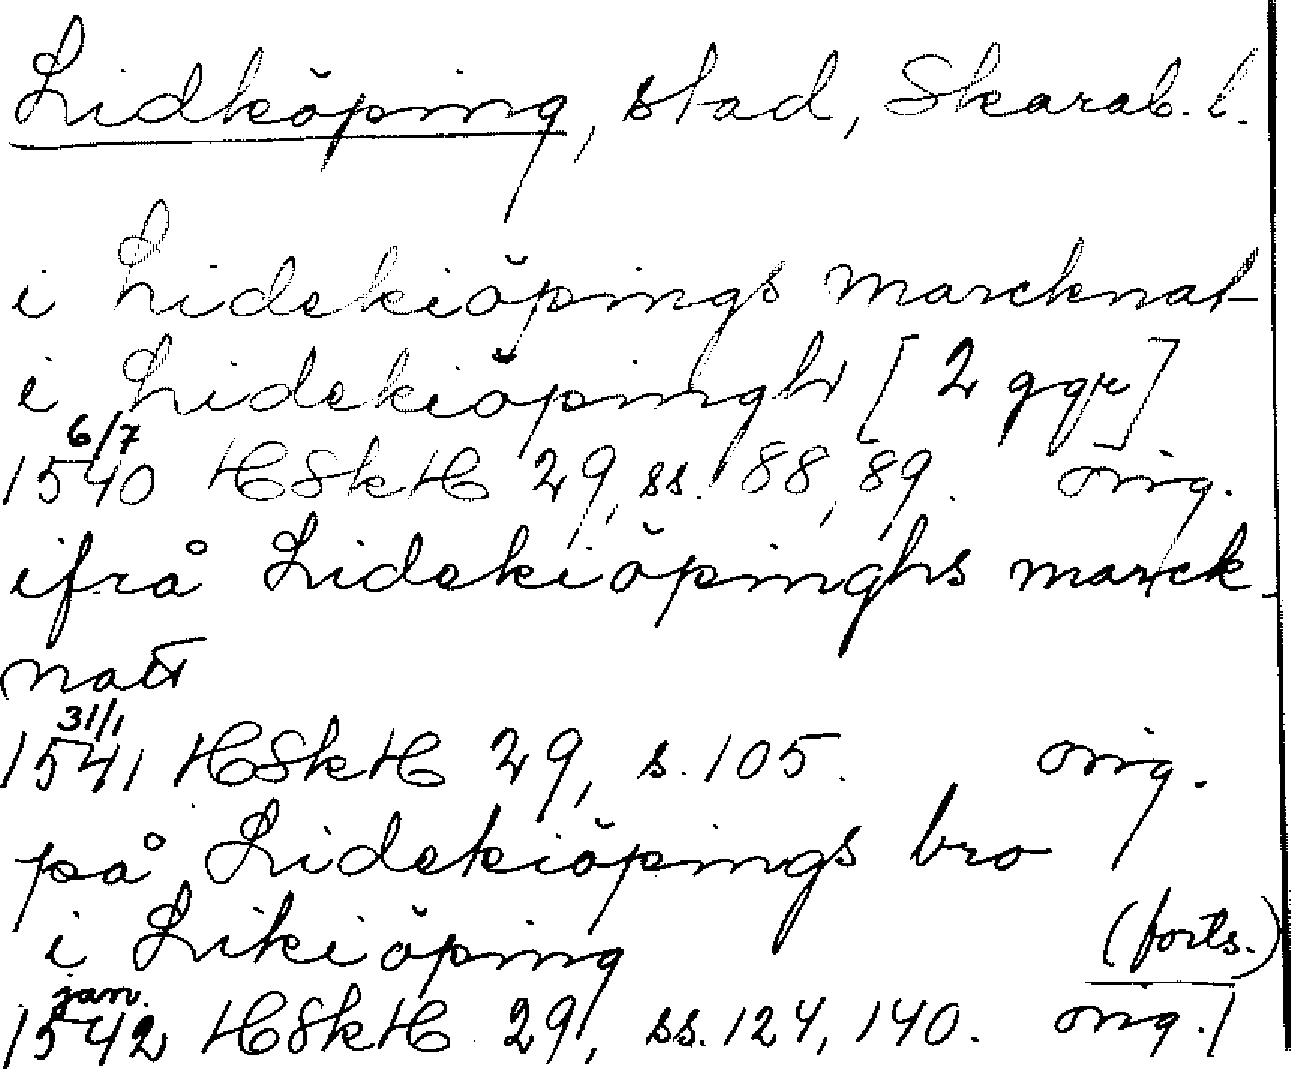 Lidköping, stad, Skarab. l.
i Lidekiöpings marcknat
i Lidekiöpingh [2 ggr]
6/7
1540 HSkH 29, ss. 88, 89. orig.
ifrå Lidekiöpinghs marck-
natt
31/1
1541 HSkH 29, s. 105. orig.
på Lidekiöpings bro
i Likiöping (forts.)
jan.
1542 HSkH 29, ss. 124, 140. orig./